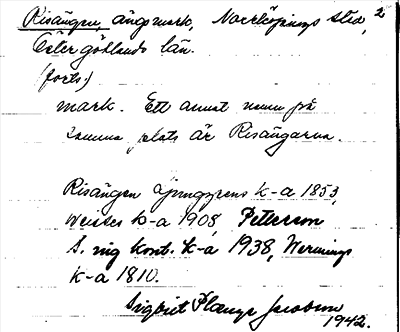 Risängen, ängsmark, Norrköpings stad, 2
Östergötlands län.
(forts.)
mark. Ett annat namn på
samma plats är Risängarna.
Risängen Ljunggrens k-a 1853,
Westes k-a 1908, Petterson
S. ing kont. k-a 1938, Wermings
k-a 1810.
Sigbrit Plænge Jacobson
1942.